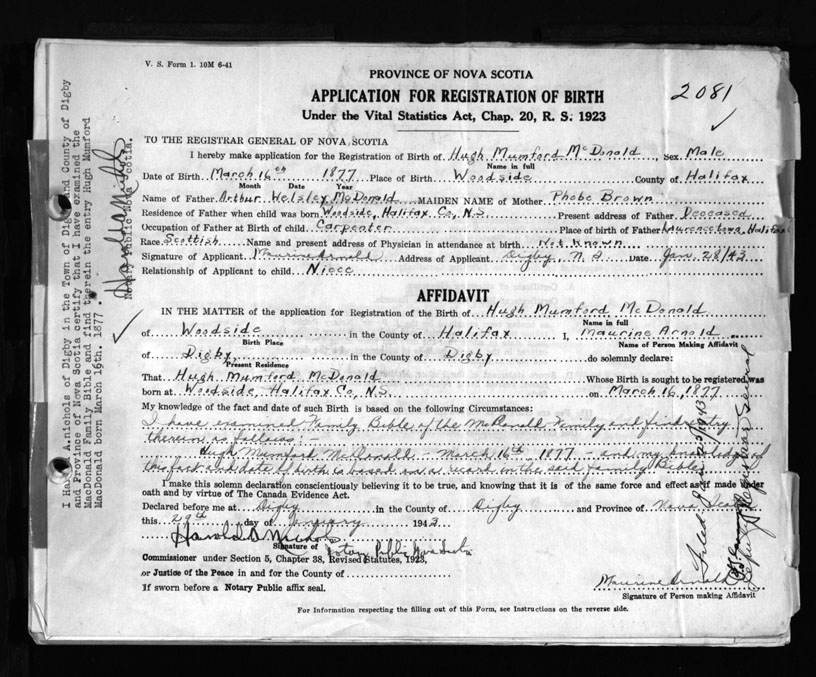 V. S. Form 1. 10M 6-41
PROVINCE OF NOVA SCOTIA
APPLICATION FOR REGISTRATION OF BIRTH
Under the Vital Statistics Act, Chap. 20, R. S. 1923
2081
TO THE REGISTRAR GENERAL OF NOVA SCOTIA
I hereby make application for the Registration of Birth of Hugh Mumford McDonald, Sex Male
Name in full
Date of Birth March 16th 1877 Place of Birth Woodside County of Halifax
Month Date Year
Name of Father Arthur Welsley McDonald MAIDEN NAME of Mother Phobe Brown
Residence of Father when child was born Woodside, Halifax Co, N.S. Present address of Father Deceased
Occupation of Father at Birth of child Carpenter Place of birth of Father Lawrencetown, Halifax
Race Scottish Name and present address of Physician in attendance at birth Not Known
Signature of Applicant Maurine Arnold Address of Applicant Digby, N.S. Date Jan. 28/43
Relationship of Applicant to child Niece
AFFIDAVIT
IN THE MATTER of the application for Registration of the Birth of Hugh Mumford McDonald
Name in full
of Woodside in the County of Halifax I, Maurine Arnold
Birth Place Name of Person Making Affidavit
of Digby in the County of Digby do solemnly declare:
Present Residence
That Hugh Mumford McDonald Whose Birth is sought to be registered was
born at Woodside, Halifax Co, N.S. on March 16, 1877
My knowledge of the fact and date of such Birth is based on the following Circumstances:
I have examined Family Bible of the McDonald Family and find entry
therein as follows:-
Hugh Mumford McDonald - March 16th 1877 - and my knowledge of
this fact and date of birth is based on a record in the said family Bible
I make this solemn declaration conscientiously believing it to be true, and knowing that it is of the same force and effect as if made under
oath and by virtue of The Canada Evidence Act.
Declared before me at Digby in the County of Digby and Province of Nova Scotia
this 29th day of January 1943
Harold A Nichols
Signature of Notary Public Nova Scotia
Commissioner under Section 5, Chapter 38, Revised Statutes, 1923,
or Justice of the Peace in and for the County of
If sworn before a Notary Public affix seal.
Maurine Arnold
Signature of Person making Affidavit
For Information respecting the filling out of this Form, see Instructions on the reverse side.
I Harold A. nichols of Digby in the Town of Digby and County of Digby
and Province of Nova Scotia certify that I have examined the
MacDonald Family Bible and find therein the entry Hugh Mumford
MacDonald born March 16th. 1877.
Harold A Nichols
Notary Public Nova Scotia.
Filed 1943
Deputy Registrar General